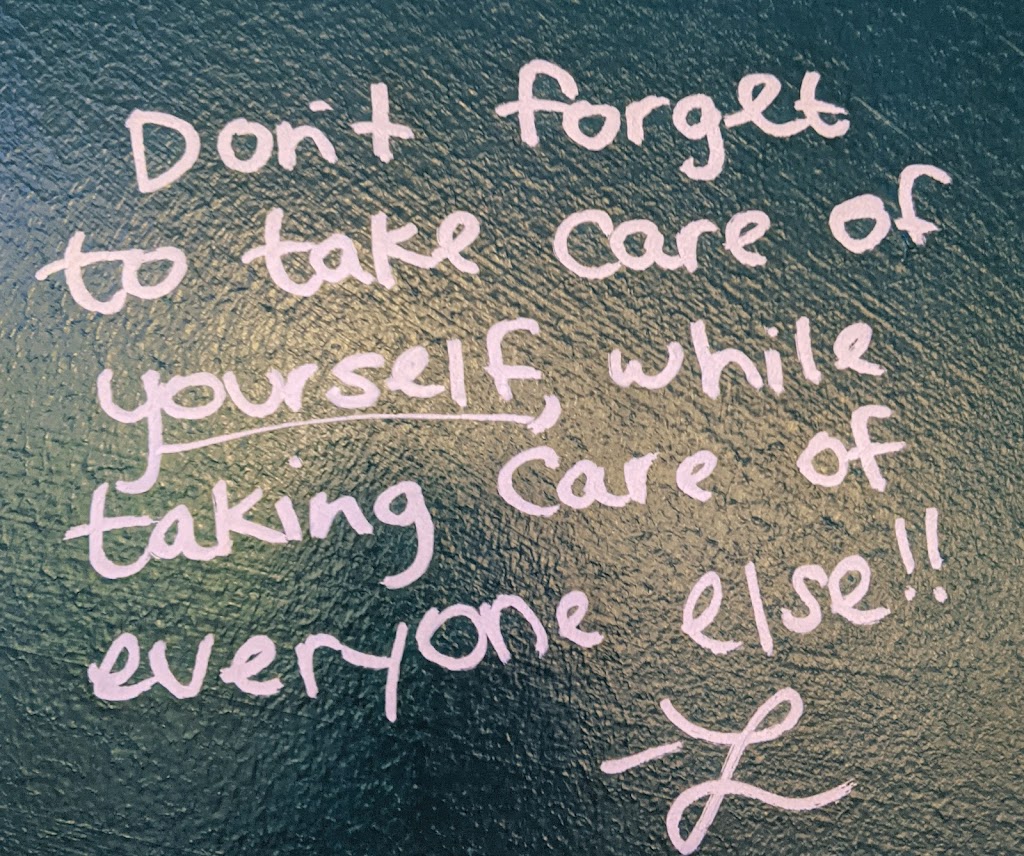 Don't forget
to take care of
yourself, while
taking care of
everyone else!!
- L